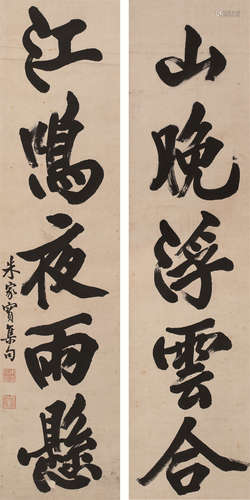 山晚浮雲合
江鳴夜雨懸
朱家寶集句